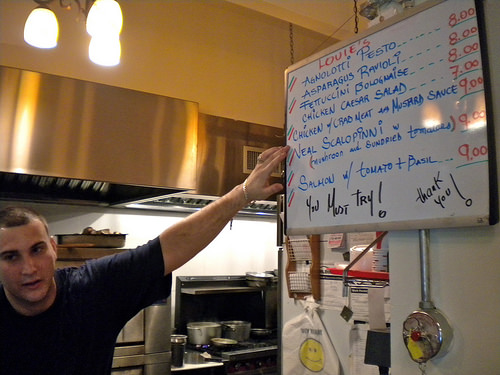 LOUIE'S
AGNOLOTTI PESTO 8.00
ASPARAGUS RAVIOLI 8.00
FETTUCCINI BOLOGNAISE 8.00
CHICKEN CAESAR SALAD 7.00
CHICKEN w/ CRAB MEAT MUSTARD SAUCE 9.00
VEAL SCALOPINNI w 9.00
(mushroom and sundried tomatoes)
SALMON w/ TOMATO + BASIL 9.00
You Must Try!
thank you!